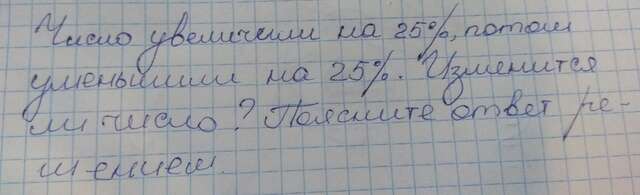 Число увеличили на 25%, потом
уменьшили на 25%. Изменится
ли число? Поясните ответ ре-
шением.